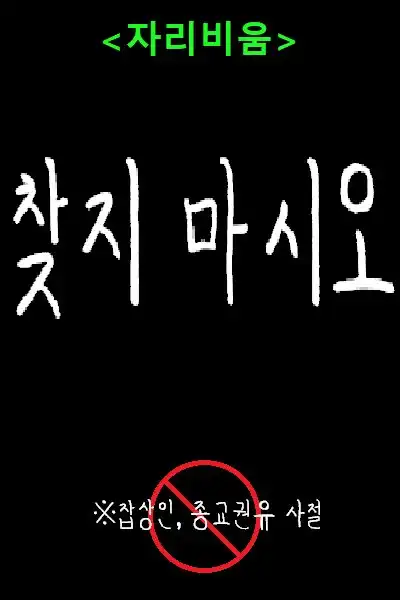 <자리비움>
찾지 마시오
※잡상인, 종교권유 사절